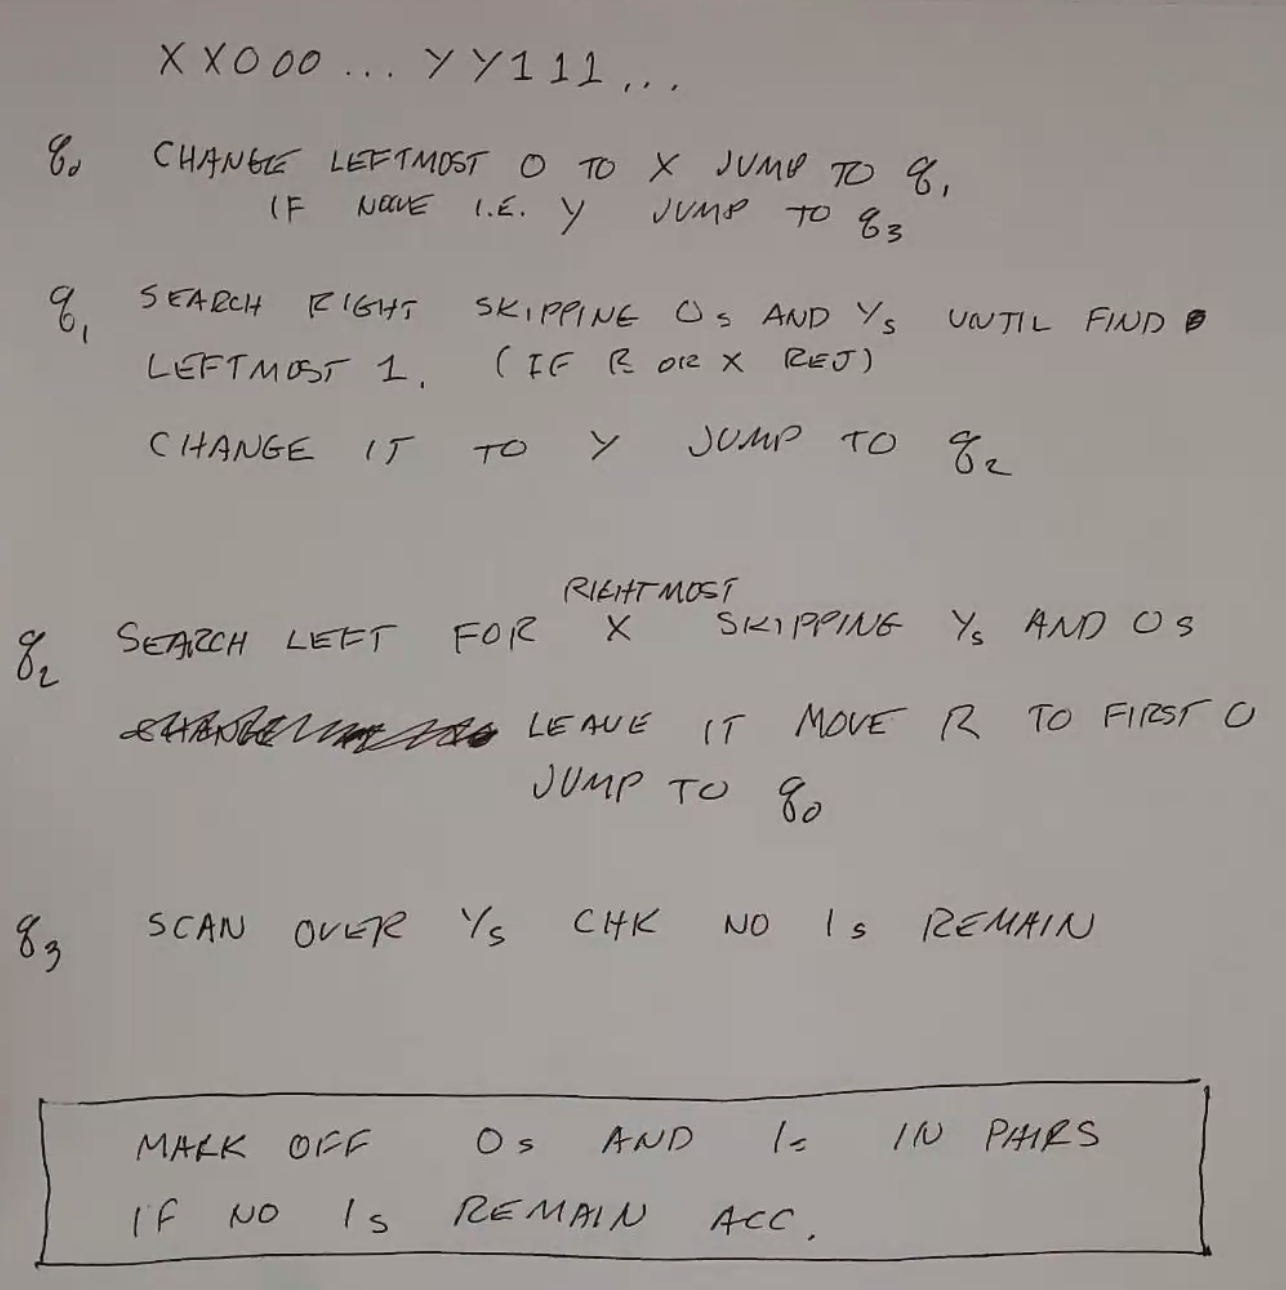 XX000...YY111...
q0 CHANGE LEFTMOST 0 TO X JUMP TO q1
IF NONE I.E. Y JUMP TO q3
q1 SEARCH RIGHT SKIPPING 0s AND Ys UNTIL FIND
LEFTMOST 1. (IF B OR X REJ)
CHANGE IT TO Y JUMP TO q2
RIGHTMOST
q2 SEARCH LEFT FOR X SKIPPING Ys AND 0s
LEAVE IT MOVE R TO FIRST 0
JUMP TO q0
q3 SCAN OVER Ys CHK NO 1s REMAIN
MARK OFF 0s AND 1s IN PAIRS
IF NO 1s REMAIN ACC.